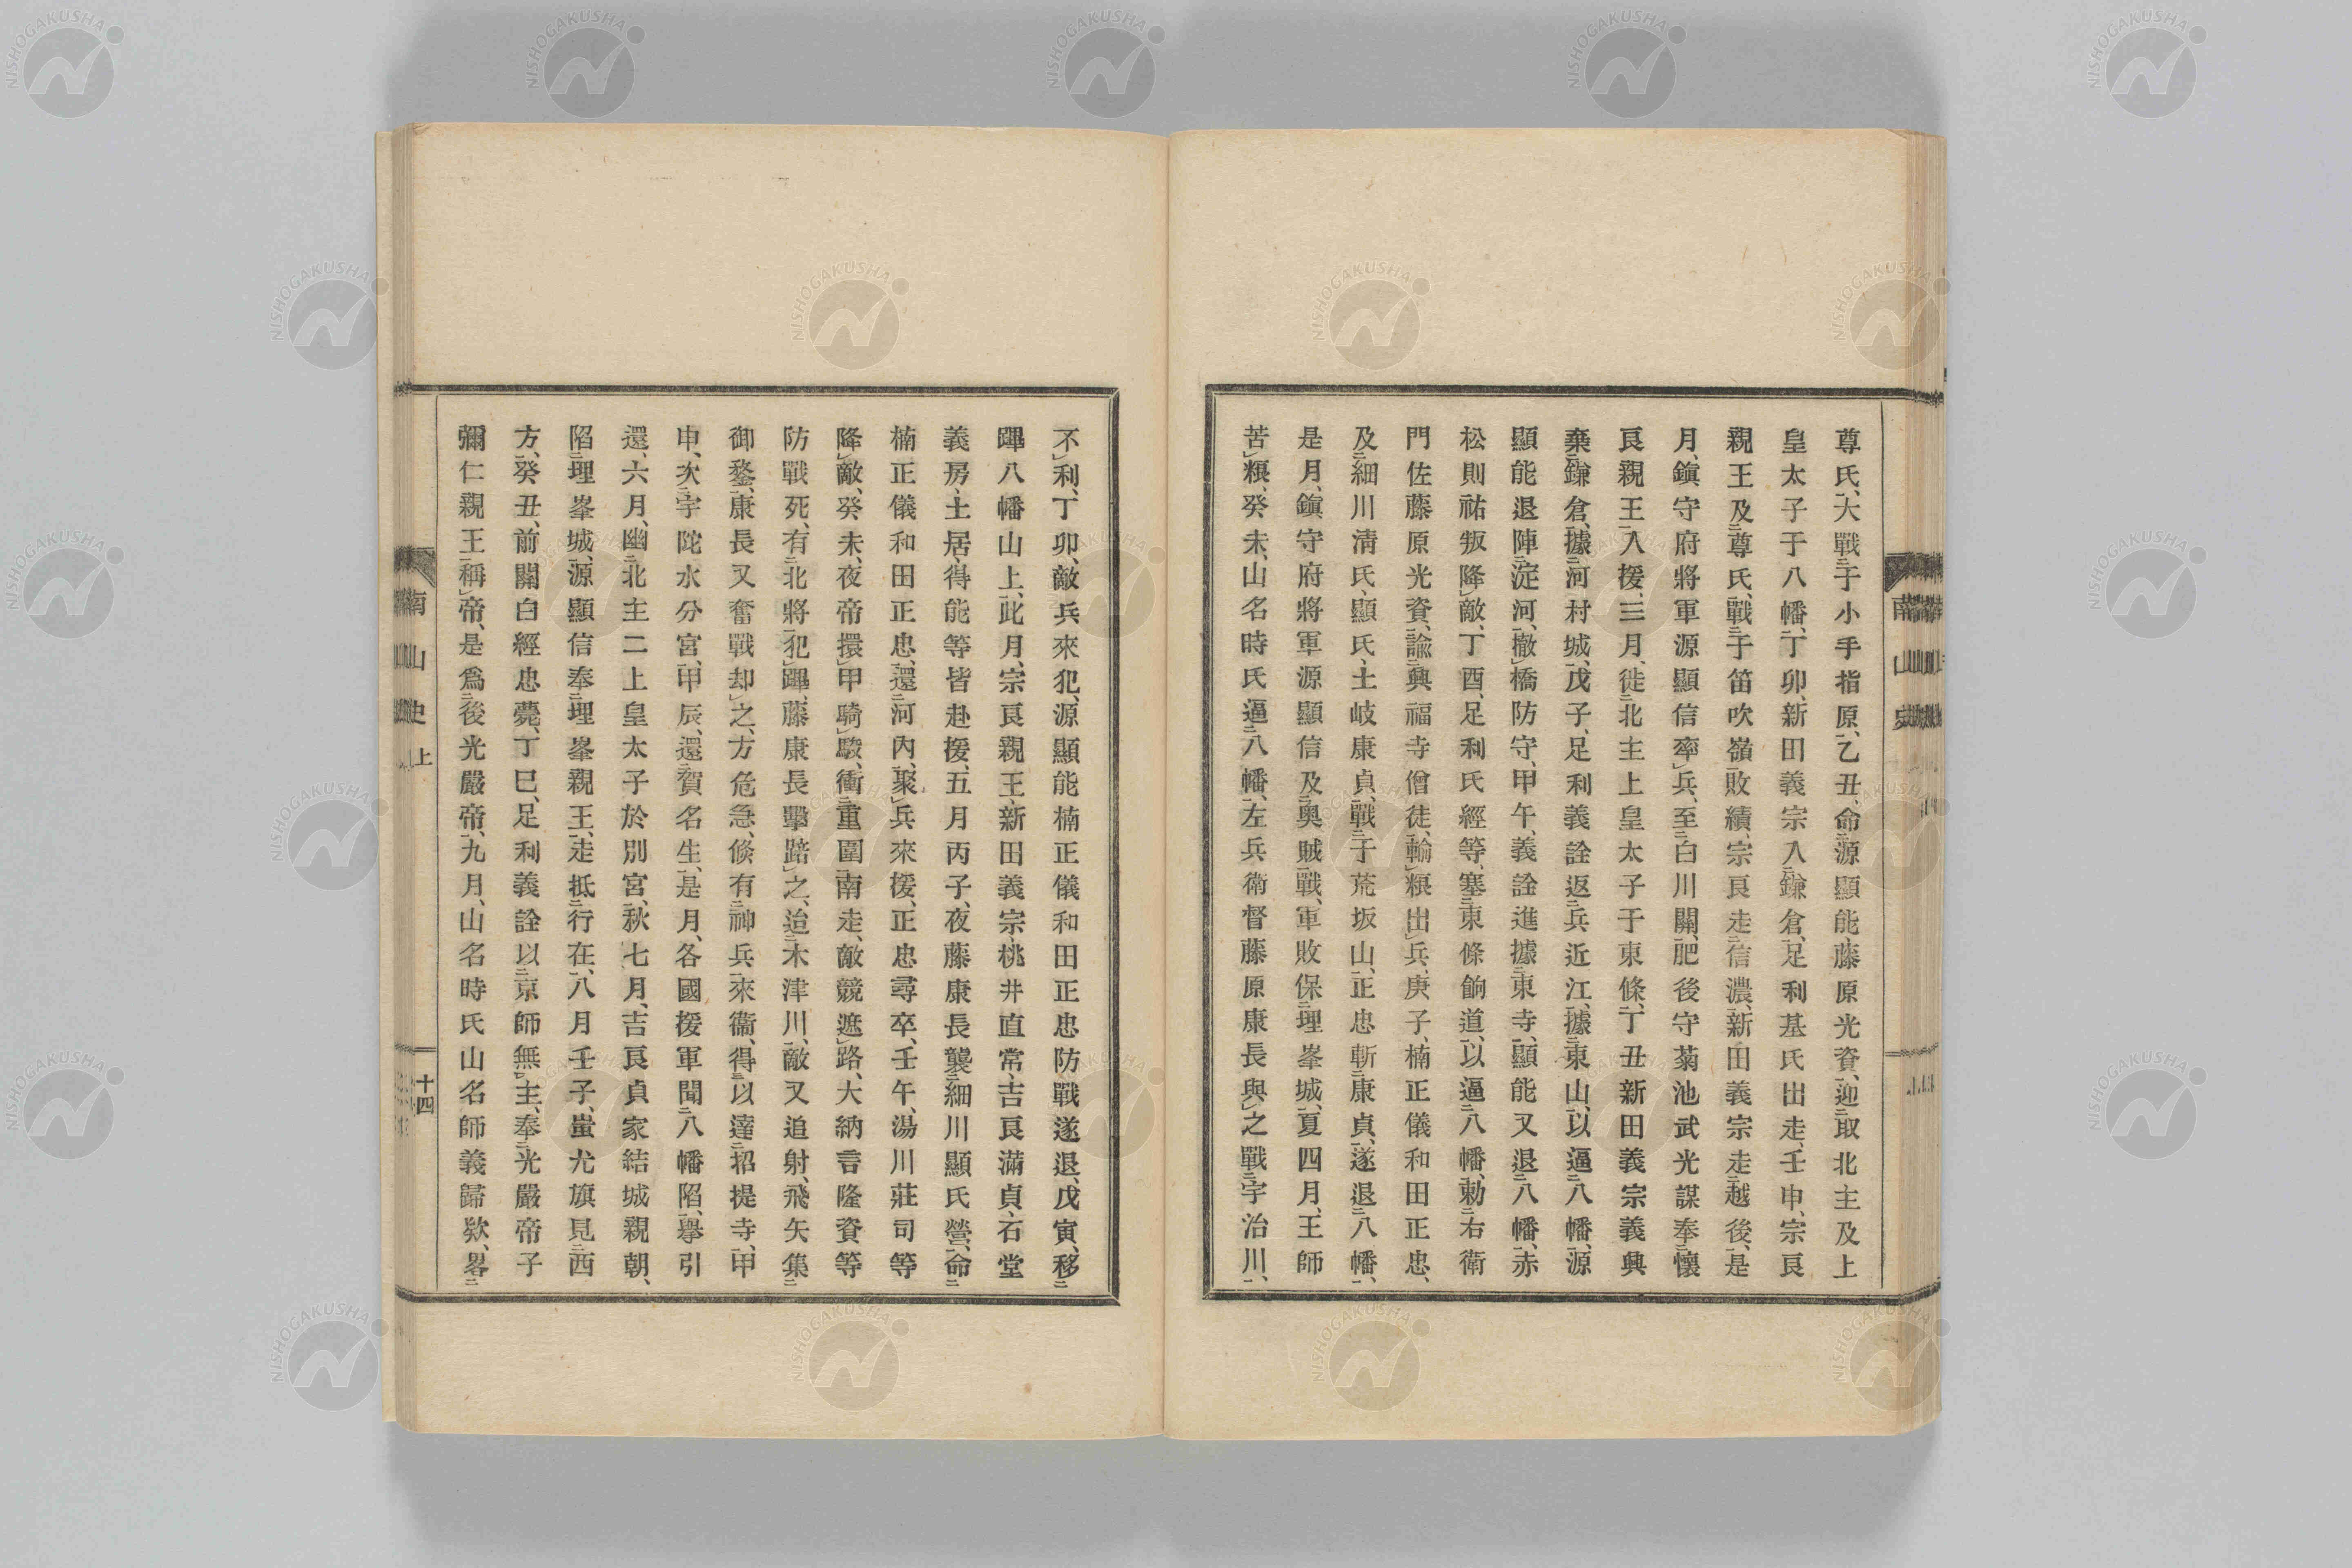 尊氏、大戰于小手指原、乙丑、命源顯能藤原光資、迎取北主及上
皇太子于八幡、丁卯、新田義宗入鎌倉、足利基氏出走、壬申、宗良
親王及尊氏、戰于笛吹嶺、敗績、宗良走信濃、新田義宗走越後、是
月、鎭守府將軍源顯信率兵、至白川關、肥後守菊池武光謀奉懷
良親王入援、三月、徙北主上皇太子于東條、丁丑新田義宗義興
棄鎌倉、據河村城、戊子、足利義詮返兵近江、據東山、以逼八幡、源
顯能退陣淀河、撤橋防守、甲午、義詮進據東寺、顯能又退八幡、赤
松則祐叛降敵、丁酉、足利氏經等、塞東條餉道、以逼八幡、勅右衛
門佐藤原光資、諭興福寺僧徒、輸糧出兵、庚子、楠正儀和田正忠、
及細川清氏、顯氏、土岐康貞、戰于荒坂山、正忠斬康貞、遂退八幡、
是月、鎭守府將軍源顯信及奧賊戰、軍敗保埋峯城、夏四月、王師
苦糧、癸未、山名時氏逼八幡、左兵衛督藤原康長與之戰宇治川、
不利、丁卯、敵兵來犯、源顯能楠正儀和田正忠防戰遂退、戊寅、移
蹕八幡山上、此月、宗良親王、新田義宗、桃井直常、吉良滿貞、石堂
義房、土居、得能等皆赴援、五月丙子、夜藤康長襲細川顯氏營、命
楠正儀和田正忠、還河內、聚兵來援、正忠尋卒、壬午、湯川莊司等
降敵、癸未、夜帝擐甲騎駿、衝重圍南走、敵競遮路、大納言隆資等
防戰死、有北將犯蹕、藤康長擊踣之、造木津川、敵又追射、飛矢集
御鍪、康長又奮戰却之、方危急、倐有神兵來衞、得以達招提寺、甲
申、次宇陀水分宮、甲辰、還賀名生、是月、各國援軍聞八幡陷、擧引
還、六月、幽北主二上皇太子於別宮、秋七月、吉良貞家結城親朝、
陷埋峯城、源顯信奉埋峯親王、走抵行在、八月壬子、蚩尤旗見西
方、癸丑、前關白經忠薨、丁巳、足利義詮以京師無主、奉光嚴帝子
彌仁親王稱帝、是爲後光嚴帝、九月、山名時氏山名師義歸欵、畧
南山史 上 十四